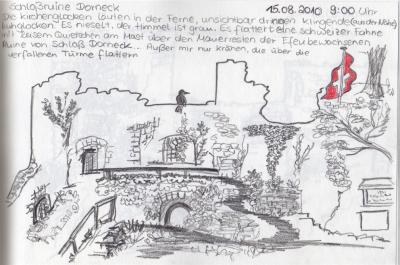 Schloßruine Dorneck 15.08.2010 9:00 Uhr
Die Kirchenglocken läuten in der Ferne, unsichtbar klingende
Kuhglocken. Es nieselt, der Himmel ist grau. Es flattert eine schweizer Fahne
mit leisem Quietschen am Mast über den Mauerresten der Efeu bewachsenen
Ruine von Schloß Dorneck... Außer mir nur Krähen, die über die
verfallenen Türme flattern